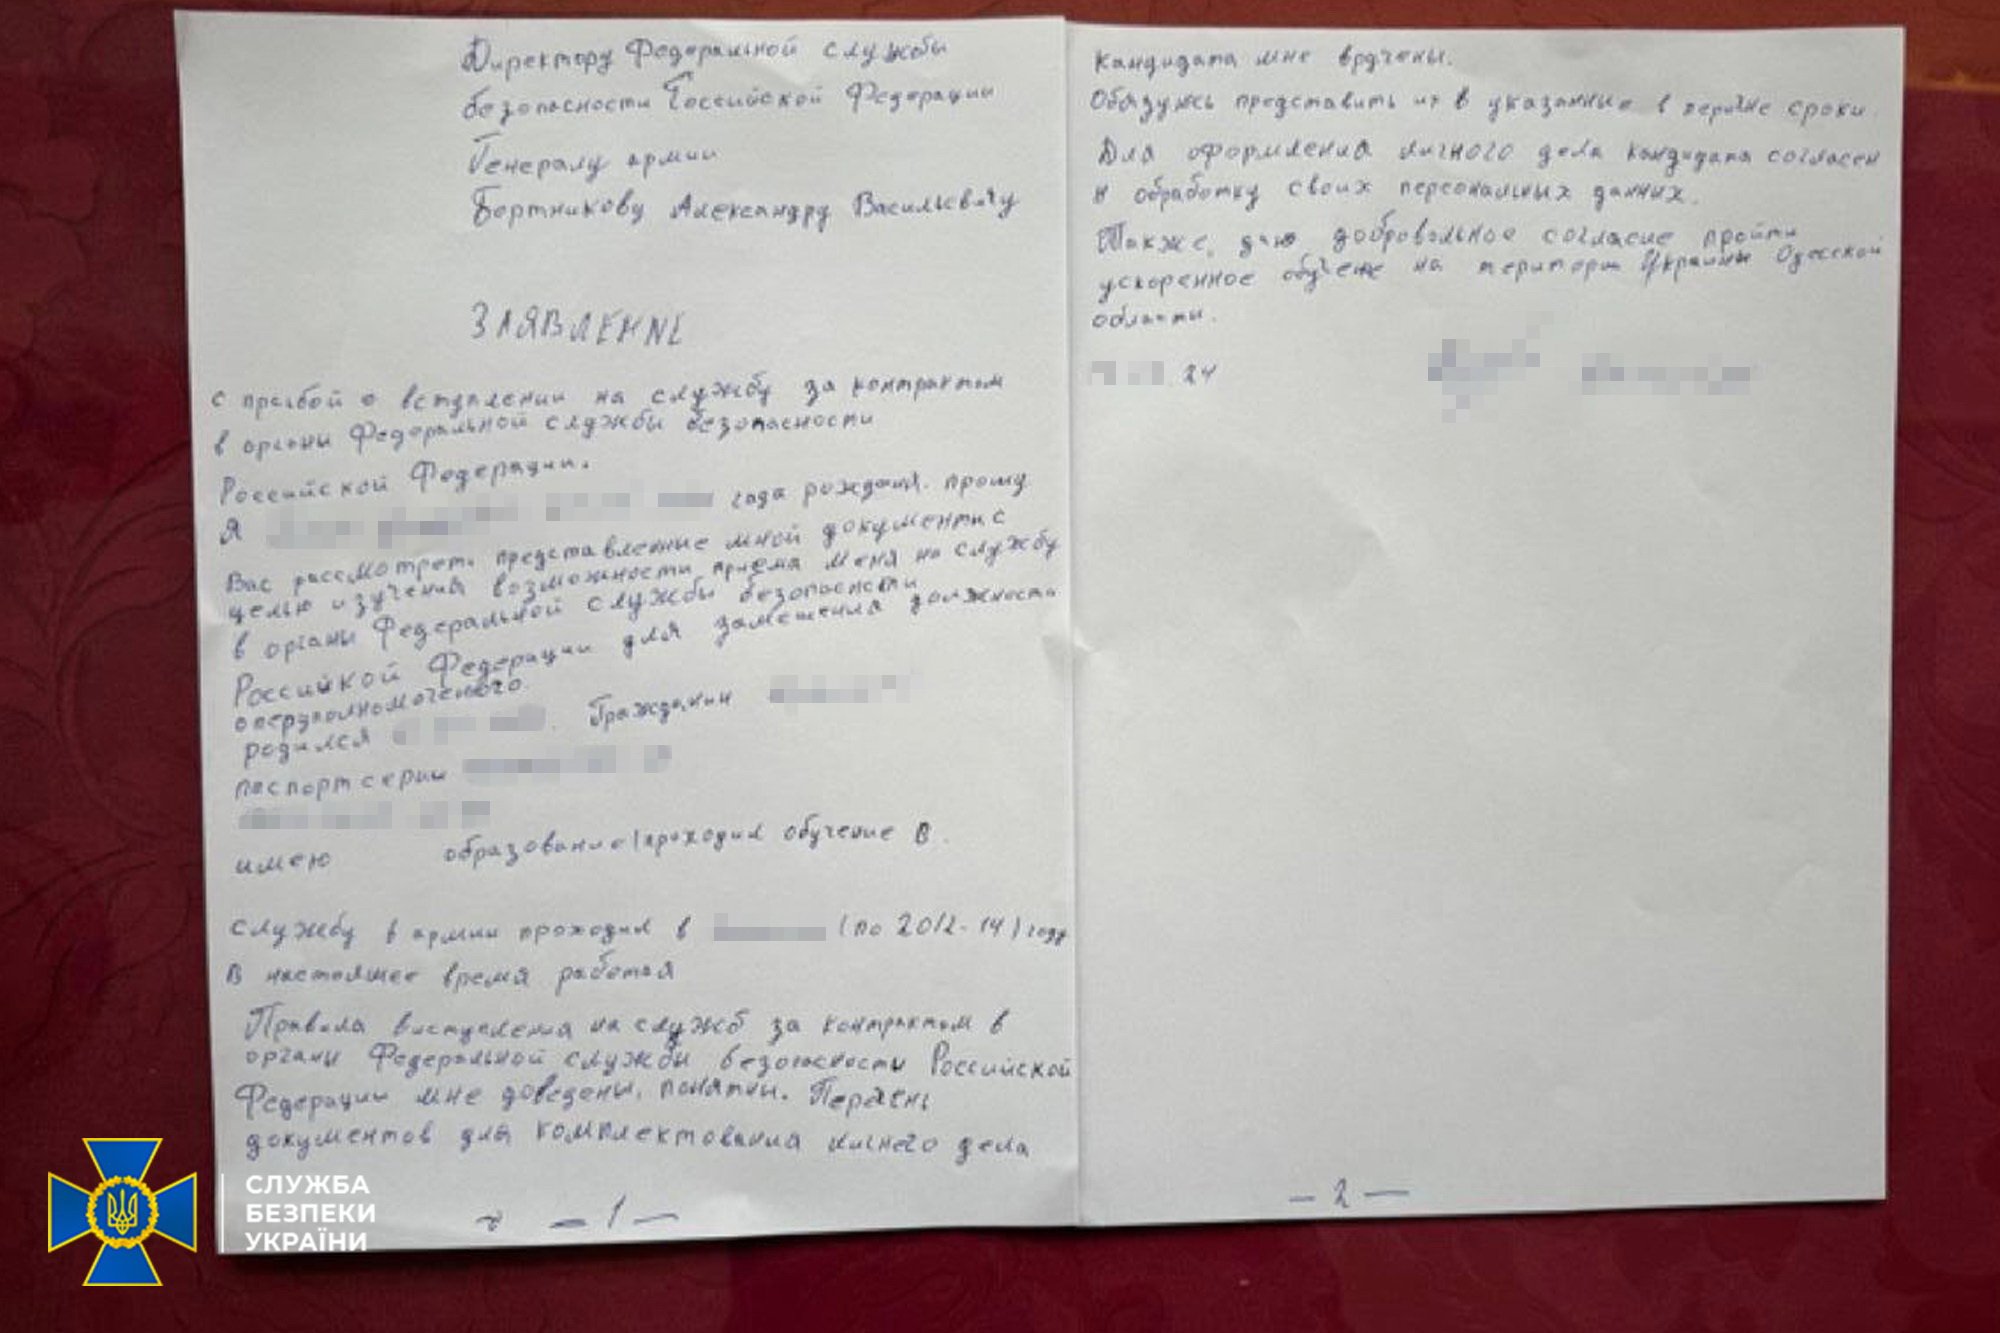 Директору Федеральной службы
безопасности Российской Федерации
Генералу армии
Бортникову Александру Васильевичу
ЗАЯВЛЕНИЕ
с прасбой о вступлении на службу за контрактом
в органы Федеральной службы безопасности
Российской Федерации.
Я года рождения. прошу
Вас рассмотреть представленние мной документи с
целью изучения возможности приёма меня на службу
в органы Федеральной службы безопасности
Российкой Федерации для замещения должности
оперуполномоченого.
родился . Гражданин
паспорт серии
имею образование/проходил обучение в.
службу в армии проходил в (по 2012-14) году
В настоящее время работая
Правила вступления на служб за контрактом в
органы Федеральной службы безопасности Российской
Федерации мне доведены, понятны. Перечень
документов для комплектования личнего дела
- 1 -
кандидата мне вручены.
Обязуюсь представить их в указанные в перечне сроки.
Для оформления личного дела кандидата согласен
н обработку своих персональных данних.
Также, даю добровольное согласие пройти
ускоренное обучене на територи Украины Одесской
области.
24
- 2 -
СЛУЖБА
БЕЗПЕКИ
УКРАЇНИ